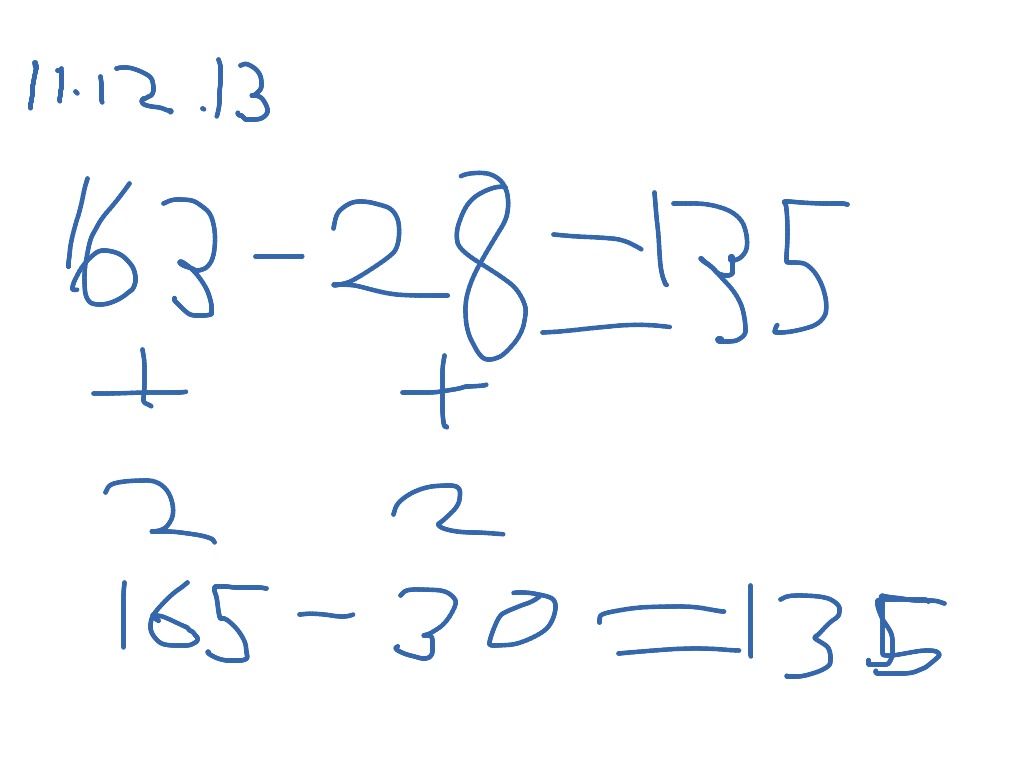 11.12.13
163 - 28 = 135
+ +
2 2
165 - 30 = 135